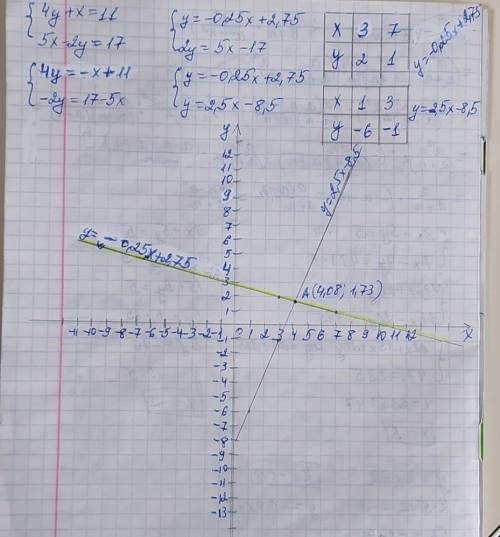 {4y+x=11
5x-2y=17
{4y=-x+11
-2y=17-5x
{y=-0,25x+2,75
2y=5x-17
{y=-0,25x+2,75
y=2,5x-8,5
x 3 7
y 2 1
y=-0,25x+2,75
x 1 3
y -6 -1
y=2,5x-8,5
y
12
11
10
9
8
7
6
5
4
3
2
1
y=-0,25x+2,75
y=2,5x-8,5
A(4,08; 1,73)
-11 -10 -9 -8 -7 -6 -5 -4 -3 -2 -1 0 1 2 3 4 5 6 7 8 9 10 11 12 x
-1
-2
-3
-4
-5
-6
-7
-8
-9
-10
-11
-12
-13